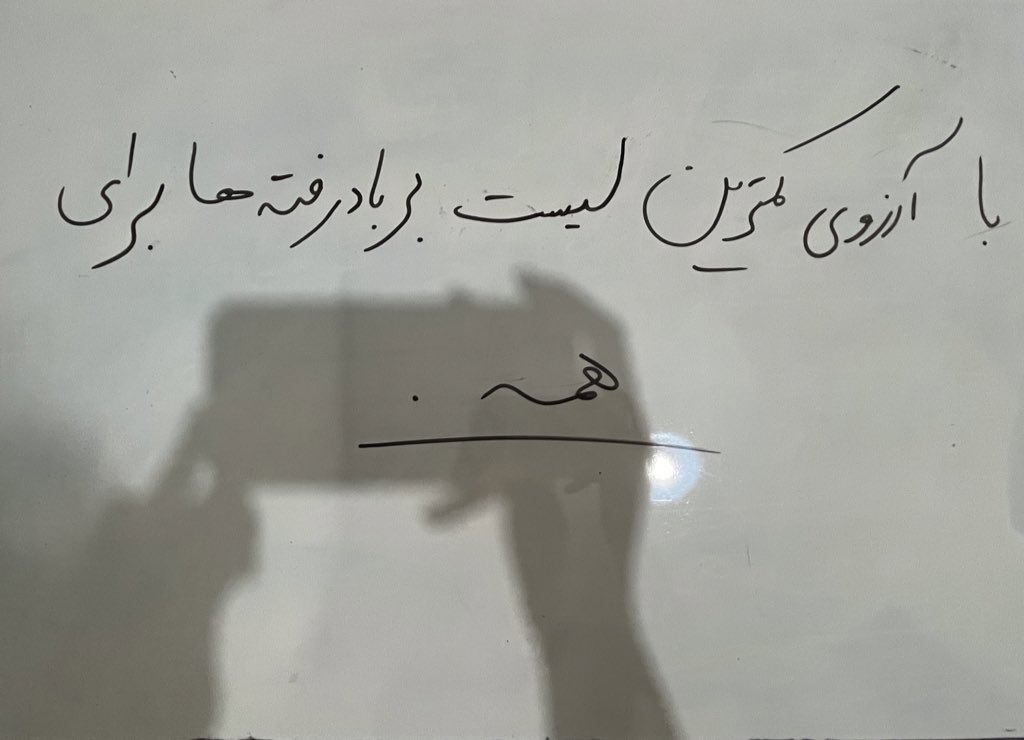 با آرزوی کمترین لیست بر باد رفته ها برای
همه .